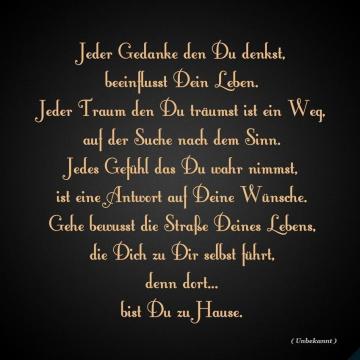 Jeder Gedanke den Du denkst,
beeinflusst Dein Leben.
Jeder Traum den Du träumst ist ein Weg,
auf der Suche nach dem Sinn.
Jedes Gefühl das Du wahr nimmst,
ist eine Antwort auf Deine Wünsche.
Gehe bewusst die Straße Deines Lebens,
die Dich zu Dir selbst führt,
denn dort...
bist Du zu Hause.
( Unbekannt )